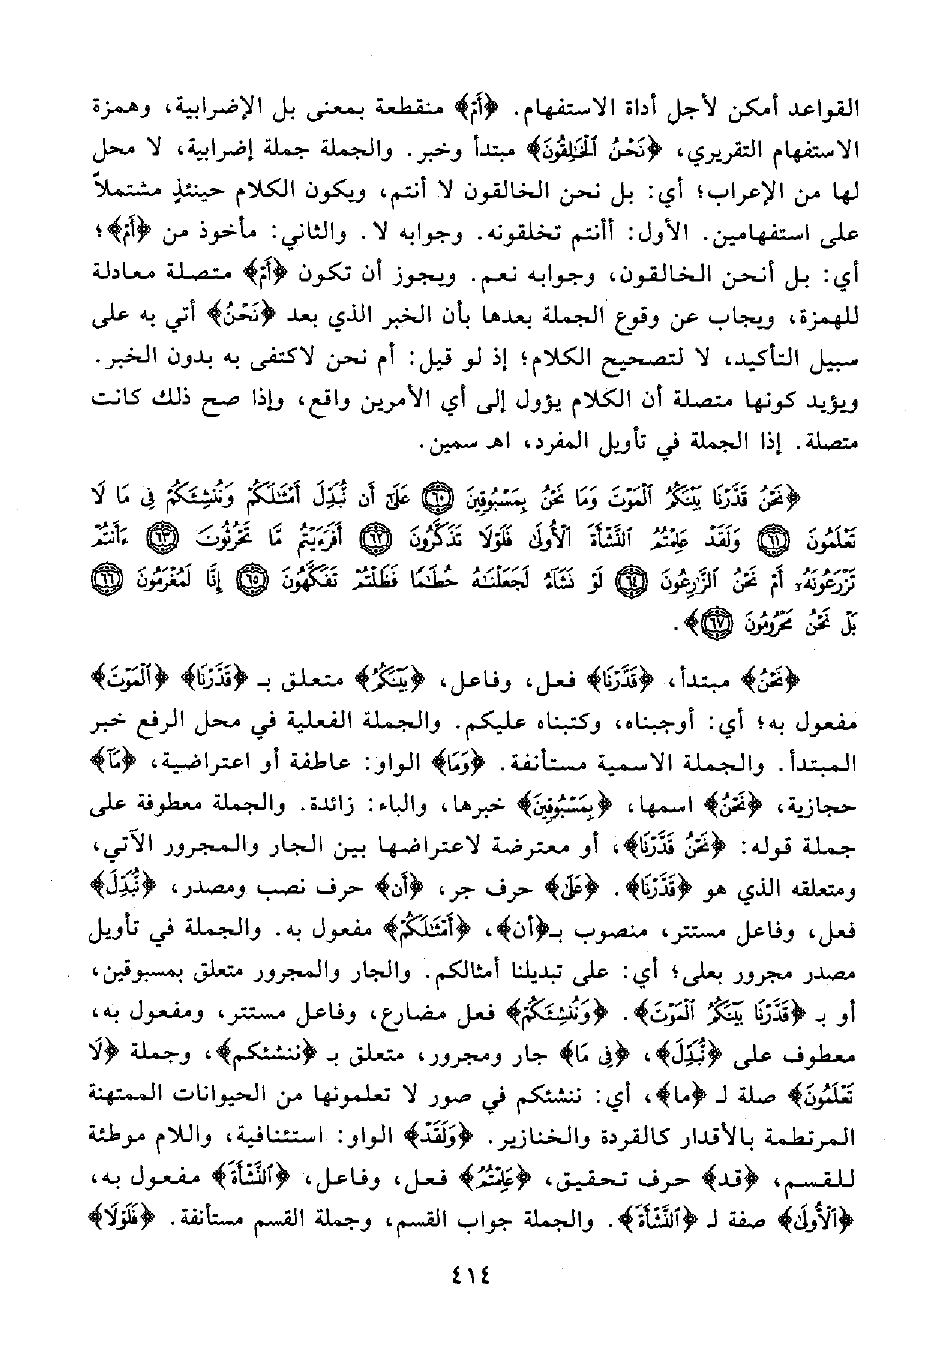 القواعد أمكن لأجل أداة الاستفهام. ﴿أَمْ﴾ منقطعة بمعنى بل الإضرابية، وهمزة
الاستفهام التقريري، ﴿نَحْنُ الْخَالِقُونَ﴾ مبتدأ وخبر. والجملة جملة إضرابية، لا محل
لها من الإعراب؛ أي: بل نحن الخالقون لا أنتم، ويكون الكلام حينئذٍ مشتملاً
على استفهامين. الأول: أأنتم تخلقونه. وجوابه لا. والثاني: مأخوذ من ﴿أَمْ﴾؛
أي: بل أنحن الخالقون، وجوابه نعم. ويجوز أن تكون ﴿أَمْ﴾ متصلة معادلة
للهمزة، ويجاب عن وقوع الجملة بعدها بأن الخبر الذي بعد ﴿نَحْنُ﴾ أتي به على
سبيل التأكيد، لا لتصحيح الكلام؛ إذ لو قيل: أم نحن لاكتفى به بدون الخبر.
ويؤيد كونها متصلة أن الكلام يؤول إلى أي الأمرين واقع، وإذا صح ذلك كانت
متصلة. إذا الجملة في تأويل المفرد، اهـ سمين.
﴿نَحْنُ قَدَّرْنَا بَيْنَكُمُ الْمَوْتَ وَمَا نَحْنُ بِمَسْبُوقِينَ ٦٠ عَلَىٰ أَن نُّبَدِّلَ أَمْثَالَكُمْ وَنُنشِئَكُمْ فِي مَا لَا
تَعْلَمُونَ ٦١ وَلَقَدْ عَلِمْتُمُ النَّشْأَةَ الْأُولَىٰ فَلَوْلَا تَذَكَّرُونَ ٦٢ أَفَرَءَيْتُم مَّا تَحْرُثُونَ ٦٣ ءَأَنتُمْ
تَزْرَعُونَهُۥ أَمْ نَحْنُ الزَّارِعُونَ ٦٤ لَوْ نَشَاءُ لَجَعَلْنَاهُ حُطَامًا فَظَلْتُمْ تَفَكَّهُونَ ٦٥ إِنَّا لَمُغْرَمُونَ ٦٦
بَلْ نَحْنُ مَحْرُومُونَ ٦٧﴾.
﴿نَحْنُ﴾ مبتدأ، ﴿قَدَّرْنَا﴾ فعل، وفاعل، ﴿بَيْنَكُمُ﴾ متعلق بـ ﴿قَدَّرْنَا﴾ ﴿الْمَوْتَ﴾
مفعول به؛ أي: أوجبناه، وكتبناه عليكم. والجملة الفعلية في محل الرفع خبر
المبتدأ. والجملة الاسمية مستأنفة. ﴿وَمَا﴾ الواو: عاطفة أو اعتراضية، ﴿مَا﴾
حجازية، ﴿نَحْنُ﴾ اسمها، ﴿بِمَسْبُوقِينَ﴾ خبرها، والباء: زائدة. والجملة معطوفة على
جملة قوله: ﴿نَحْنُ قَدَّرْنَا﴾، أو معترضة لاعتراضها بين الجار والمجرور الآتي،
ومتعلقه الذي هو ﴿قَدَّرْنَا﴾. ﴿عَلَىٰ﴾ حرف جر، ﴿أَن﴾ حرف نصب ومصدر، ﴿نُّبَدِّلَ﴾
فعل، وفاعل مستتر، منصوب بـ﴿أن﴾، ﴿أَمْثَالَكُمْ﴾ مفعول به. والجملة في تأويل
مصدر مجرور بعلى؛ أي: على تبديلنا أمثالكم. والجار والمجرور متعلق بمسبوقين،
أو بـ ﴿قَدَّرْنَا بَيْنَكُمُ الْمَوْتَ﴾. ﴿وَنُنشِئَكُمْ﴾ فعل مضارع، وفاعل مستتر، ومفعول به،
معطوف على ﴿نُّبَدِّلَ﴾، ﴿فِي مَا﴾ جار ومجرور، متعلق بـ ﴿ننشئكم﴾، وجملة ﴿لَا
تَعْلَمُونَ﴾ صلة لـ ﴿ما﴾، أي: ننشئكم في صور لا تعلمونها من الحيوانات الممتهنة
المرتطمة بالأقدار كالقردة والخنازير. ﴿وَلَقَدْ﴾ الواو: استئنافية، واللام موطئة
للقسم، ﴿قد﴾ حرف تحقيق، ﴿عَلِمْتُمُ﴾ فعل، وفاعل، ﴿النَّشْأَةَ﴾ مفعول به،
﴿الْأُولَىٰ﴾ صفة لـ ﴿النَّشْأَةَ﴾. والجملة جواب القسم، وجملة القسم مستأنفة. ﴿فَلَوْلَا﴾
٤١٤